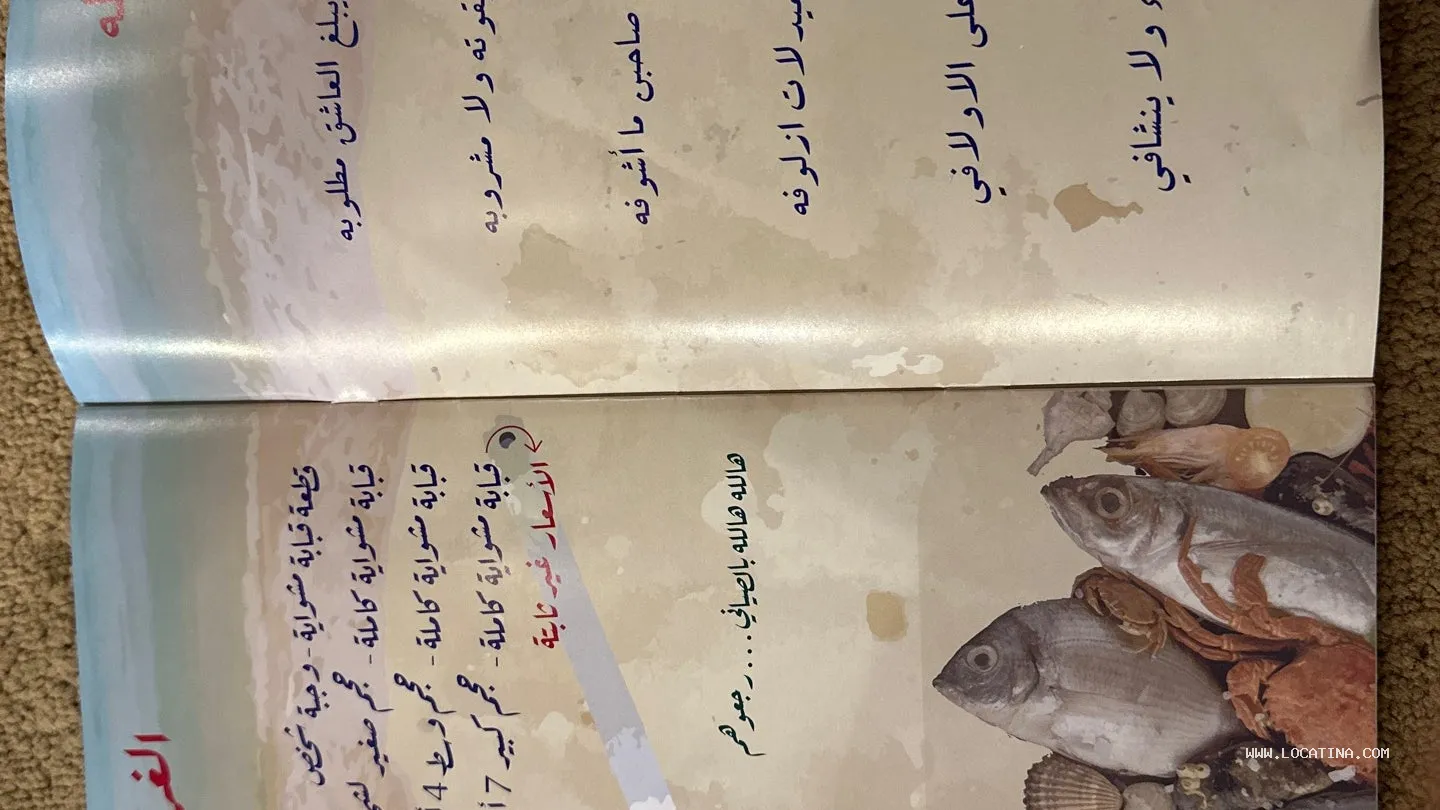 يبلغ العاشق مطلوبه
ولا مشروبه
صاحبن ما أشوفه
لات ازلوفه
على الاولافي
ولا ينشافي
قطعة قبابة مشواية - وجبة شخص
قبابة مشواية كاملة - حجم صغير
قبابة مشواية كاملة - حجم وسط 4
قبابة مشواية كاملة - حجم كبير 7
الأسعار غير ثابتة
هالله هالله بالصياني.... رجعوهم
WWW.LOCATINA.COM